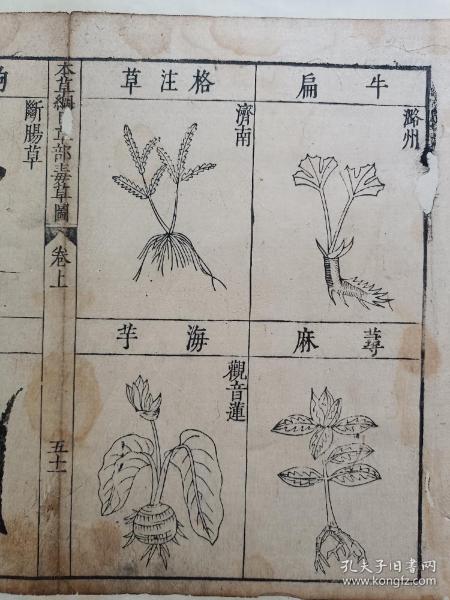 牛扁
潞州
蕁麻
格注草
濟南
海芋
觀音蓮
本草綱 草部毒草圖
卷上
五十一
斷腸草
孔夫子旧书网
www.kongfz.com